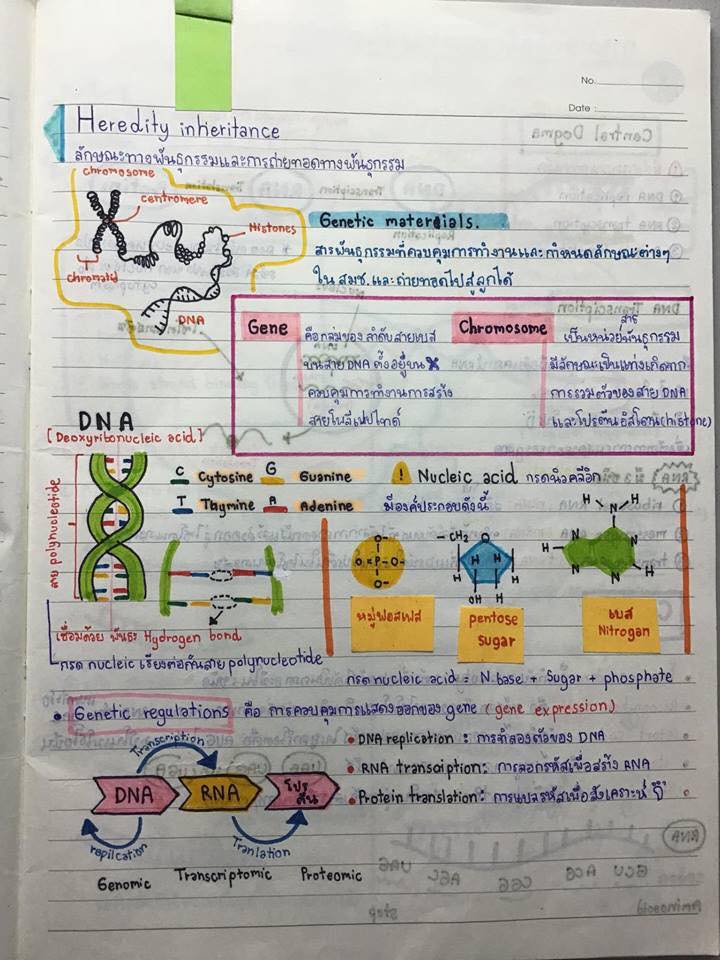 No.
Date :
Heredity inheritance
ลักษณะทางพันธุกรรมและการถ่ายทอดทางพันธุกรรม
chromosome
centromere
Histones
chromatid
DNA
Genetic materials.
สารพันธุกรรมที่ควบคุมการทำงานและกำหนดลักษณะต่างๆ
ใน สมช. และถ่ายทอดไปสู่ลูกได้
Gene
คือกลุ่มของ ลำดับสายเบส
บนสาย DNA ตั้งอยู่บน X
ควบคุมการทำงานการสร้าง
สายโพลีเปปไทด์
Chromosome
สาร
เป็นหน่วยพันธุกรรม
มีลักษณะเป็นแท่งเกิดจาก
การรวมตัวของสาย DNA
และโปรตีนฮิสโตน(histone)
DNA
[Deoxyribonucleic acid]
สาย polynucleotide
C Cytosine G Guanine
T Thymine A Adenine
เชื่อมด้วย พันธะ Hydrogen bond
กรด nucleic เรียงต่อกันสาย polynucleotide
! Nucleic acid กรดนิวคลีอิก
มีองค์ประกอบดังนี้
O-
O=P-O-
O-
หมู่ฟอสเฟส
- CH₂ O
H H
H H
OH H
pentose
sugar
H N H
N N
H
N N H
เบส
Nitrogan
กรด nucleic acid = N.base + Sugar + phosphate
Genetic regulations คือ การควบคุมการแสดงออกของ gene (gene expression)
Transcription
DNA RNA โปรตีน
repilcation
Tranlation
Genomic Transcriptomic Proteomic
DNA replication : การจำลองตัวของ DNA
RNA transciption: การลอกรหัสเพื่อสร้าง RNA
Protein translation: การแปลรหัสเพื่อสังเคราะห์